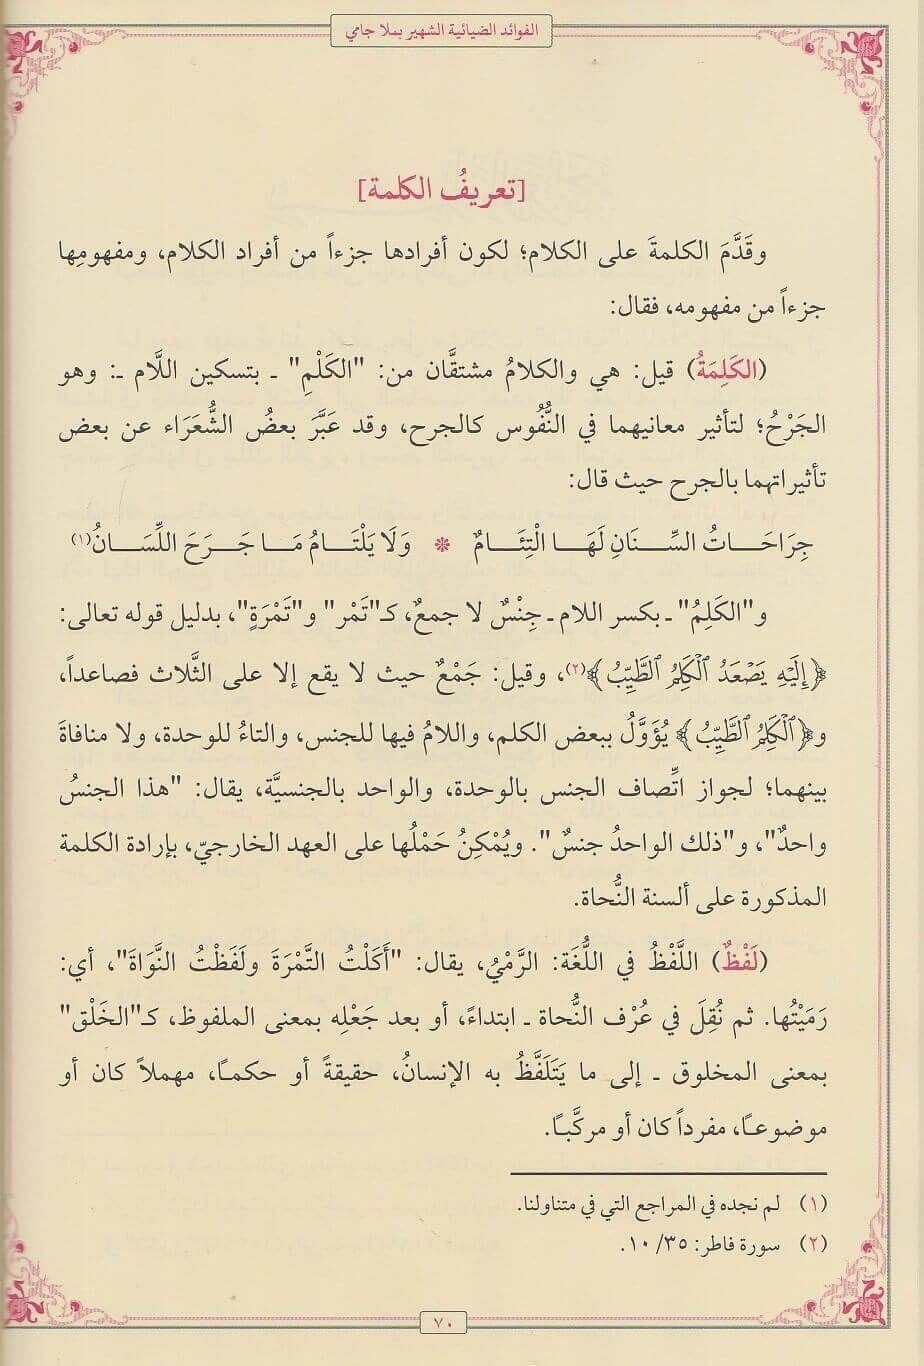 الفوائد الضيائية الشهير بملا جامي
[تعريفُ الكلمة]
وقَدَّمَ الكلمةَ على الكلام؛ لكون أفرادها جزءاً من أفراد الكلام، ومفهومِها
جزءاً من مفهومه، فقال:
(الكَلِمَةُ) قيل: هي والكلامُ مشتقَّان من: "الكَلْمِ" ـ بتسكين اللَّام ـ: وهو
الجَرْحُ؛ لتأثير معانيهما في النُّفُوس كالجرح، وقد عَبَّرَ بعضُ الشُّعَرَاء عن بعض
تأثيراتهما بالجرح حيث قال:
جِرَاحَـــاتُ السِّـنَـانِ لَهَـا الْتِئَـــامٌ * وَلَا يَلْتَـــامُ مَــا جَـــرَحَ اللِّسَـــانُ(١)
و"الكَلِمُ" ـ بكسر اللام ـ جِنْسٌ لا جمعٌ، كـ"تَمْر" و"تَمْرَةٍ"، بدليل قوله تعالى:
﴿إِلَيْهِ يَصْعَدُ ٱلْكَلِمُ ٱلطَّيِّبُ﴾(٢)، وقيل: جَمْعٌ حيث لا يقع إلا على الثَّلاث فصاعداً،
و﴿ٱلْكَلِمُ ٱلطَّيِّبُ﴾ يُؤَوَّلُ ببعض الكلم، واللامُ فيها للجنس، والتاءُ للوحدة، ولا منافاةَ
بينهما؛ لجواز اتِّصاف الجنس بالوحدة، والواحد بالجنسيَّة، يقال: "هذا الجنسُ
واحدٌ"، و"ذلك الواحدُ جنسٌ". ويُمْكِنُ حَمْلُها على العهد الخارجيّ، بإرادة الكلمة
المذكورة على ألسنة النُّحاة.
(لَفْظٌ) اللَّفْظُ في اللُّغَة: الرَّمْيُ، يقال: "أَكَلْتُ التَّمْرَةَ ولَفَظْتُ النَّوَاةَ"، أي:
رَمَيْتُها. ثم نُقِلَ في عُرْف النُّحاة ـ ابتداءً، أو بعد جَعْلِه بمعنى الملفوظ، كـ"الخَلْق"
بمعنى المخلوق ـ إلى ما يَتَلَفَّظُ به الإنسانُ، حقيقةً أو حكمـًا، مهملاً كان أو
موضوعـًا، مفرداً كان أو مركَّبـًا.
(١) لم نجده في المراجع التي في متناولنا.
(٢) سورة فاطر: ٣٥/ ١٠.
٧٠